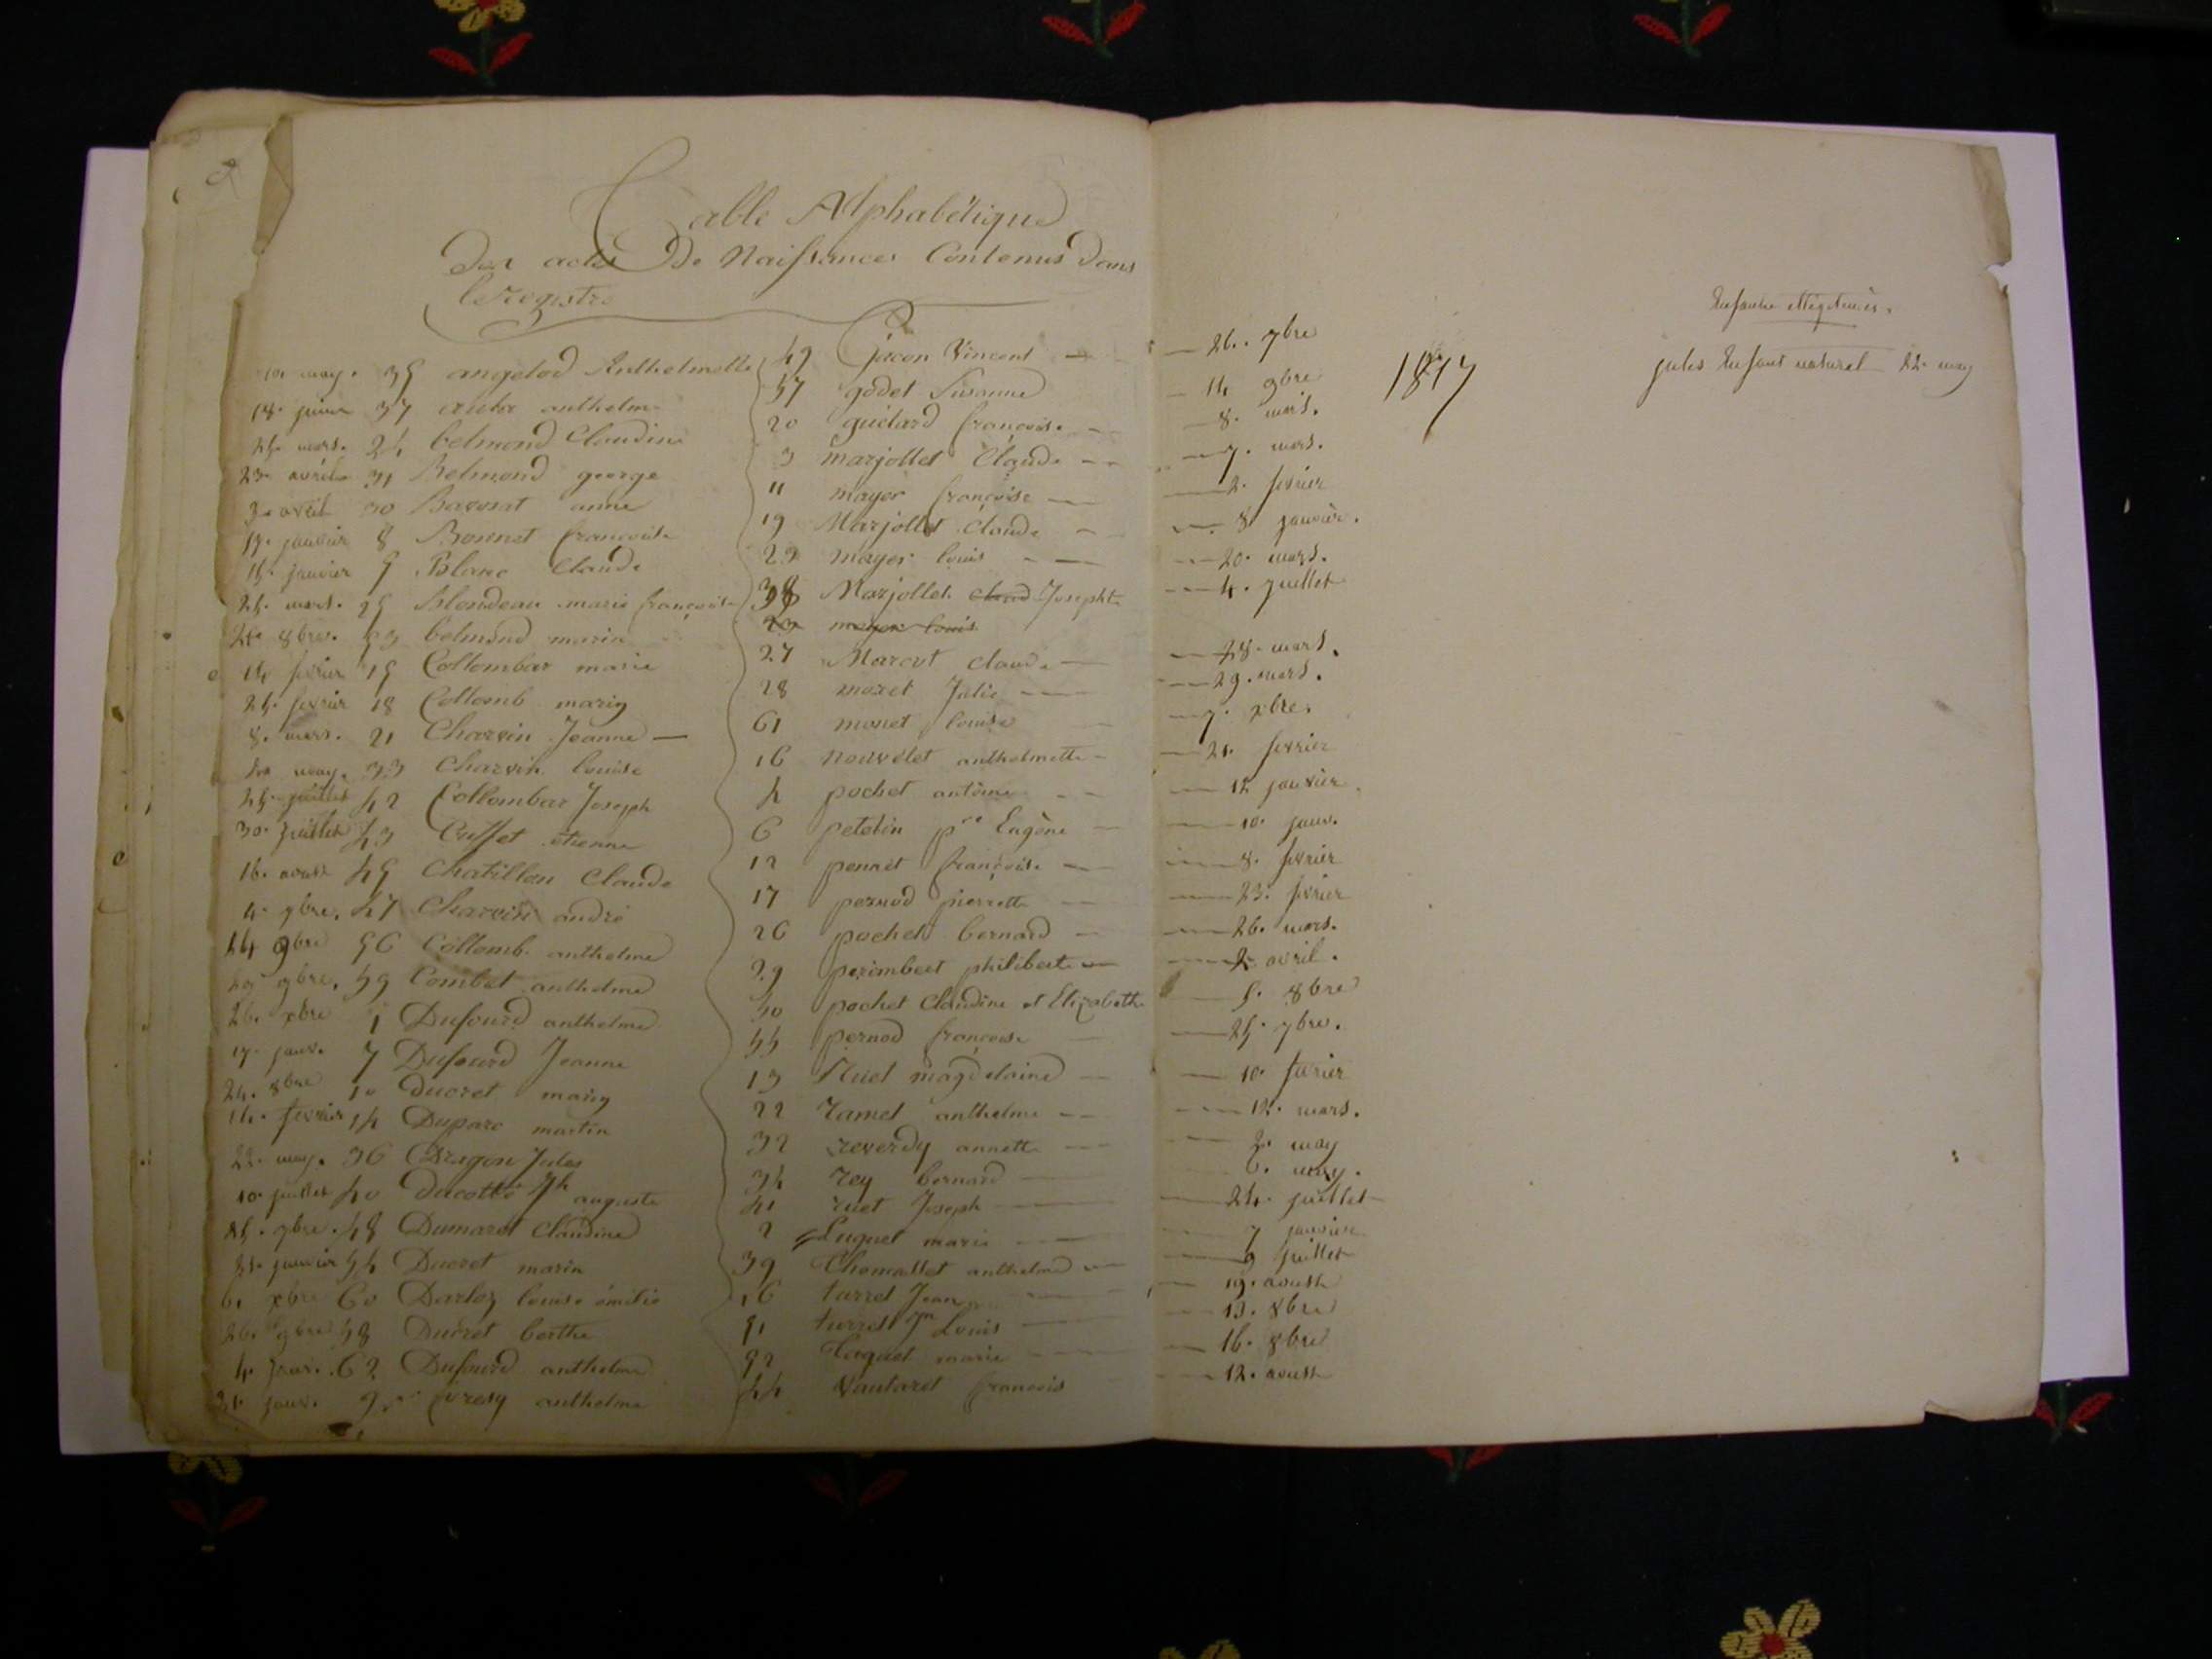 Table Alphabétique
Des actes De Naissances Contenus Dans
le Registre
10. may. 35 angelod Anthelmette
18. juin 37 anthelme
25. mars. 24 belmond Claudine
23. avril 31 Belmond george
3. avril 30 anne
17. janvier 8 Bonnet françoise
15. janvier 5 Blanc Claude
25. mars. 25 blondeau marie françoise
8bre. 53 belmond marie
14 fevrier 15 Collombar marie
25. fevrier 18 Collomb marie
8. mars. 21 Charvin Jeanne —
may. 33 Charvin louise
25. juillet 42 Collombar Joseph
30. juillet 43 étienne
16. aoust 45 Chatillon Claude
4. 7bre. 47 Charvin andré
14 9bre 56 Collomb. anthelme
9bre. 59 Combet anthelme
26. xbre 1 Dufourd anthelme
17. janv. 7 Dufourd Jeanne
24. 8bre 10 Ducret marie
14. fevrier 14 Duparc martin
22. may. 36 Dragon Jules
10. juillet 40 Ducotté Jh auguste
25. 7bre. 48 Dumarot Claudine
21. janvier 54 Ducret marie
6. xbre 60 louise émilie
26. 9bre 58 Ducret berthe
4. janv. 62 Dufourd anthelme
21. janv. 9 anthelme
49 Gacon Vincent — 26. 7bre
57 godet Susanne — 14 9bre
20 guétard françoise — 8. mars.
3 marjollet Claude — 7. mars.
11 mayer françoise — 2. fevrier
19 Marjollet Claude — 8 janvier.
23 mayer louis — 20. mars.
38 Marjollet claud Josephte — 4. juillet
23 mayer louis
27 Marcot claude — 28. mars.
28 moret Julie — 29. mars.
61 monet louise — 7. xbre.
16 nouvelet anthelmette — 21. fevrier
4 pochet antoine — 12 janvier.
6 petetin pre Eugène — 10. janv.
12 pennet françoise — 8. fevrier
17 pernod pierrette — 23. fevrier
26 pochet bernard — 26. mars.
29 perimbert philiberte — 2. avril.
50 pochet Claudine et Elizabeth — 5. 8bre
55 pernod françoise — 25. 7bre.
13 magdelaine — 10. fevrier
22 ramel anthelme — 12. mars.
32 reverdy annette — 2. may
34 rey bernard — 6. may.
41 ruet Joseph — 24. juillet
2 Luquet marie — 7 janvier
39 Thomasset anthelme — 9 juillet
46 turrel Jean — 19. aoust
51 turrel Jn Louis — 13. 8bre
52 marie — 16. 8bre
44 Vautaret françois — 12. aoust
1817
Enfants illégitimes.
jules Enfant naturel 22. may